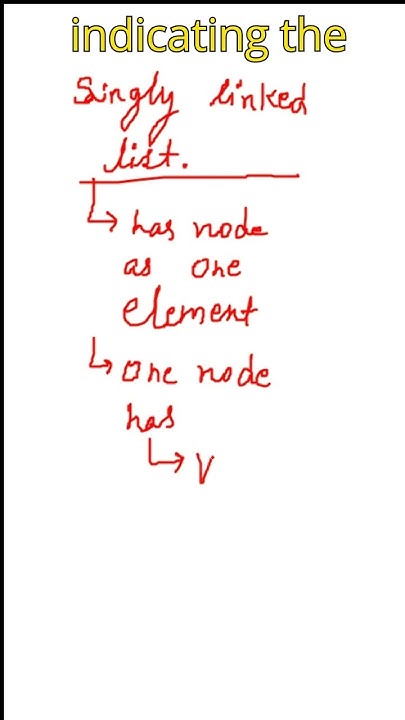 indicating the
Singly linked
list.
↳ has node
as one
element
↳ one node
has
↳ V